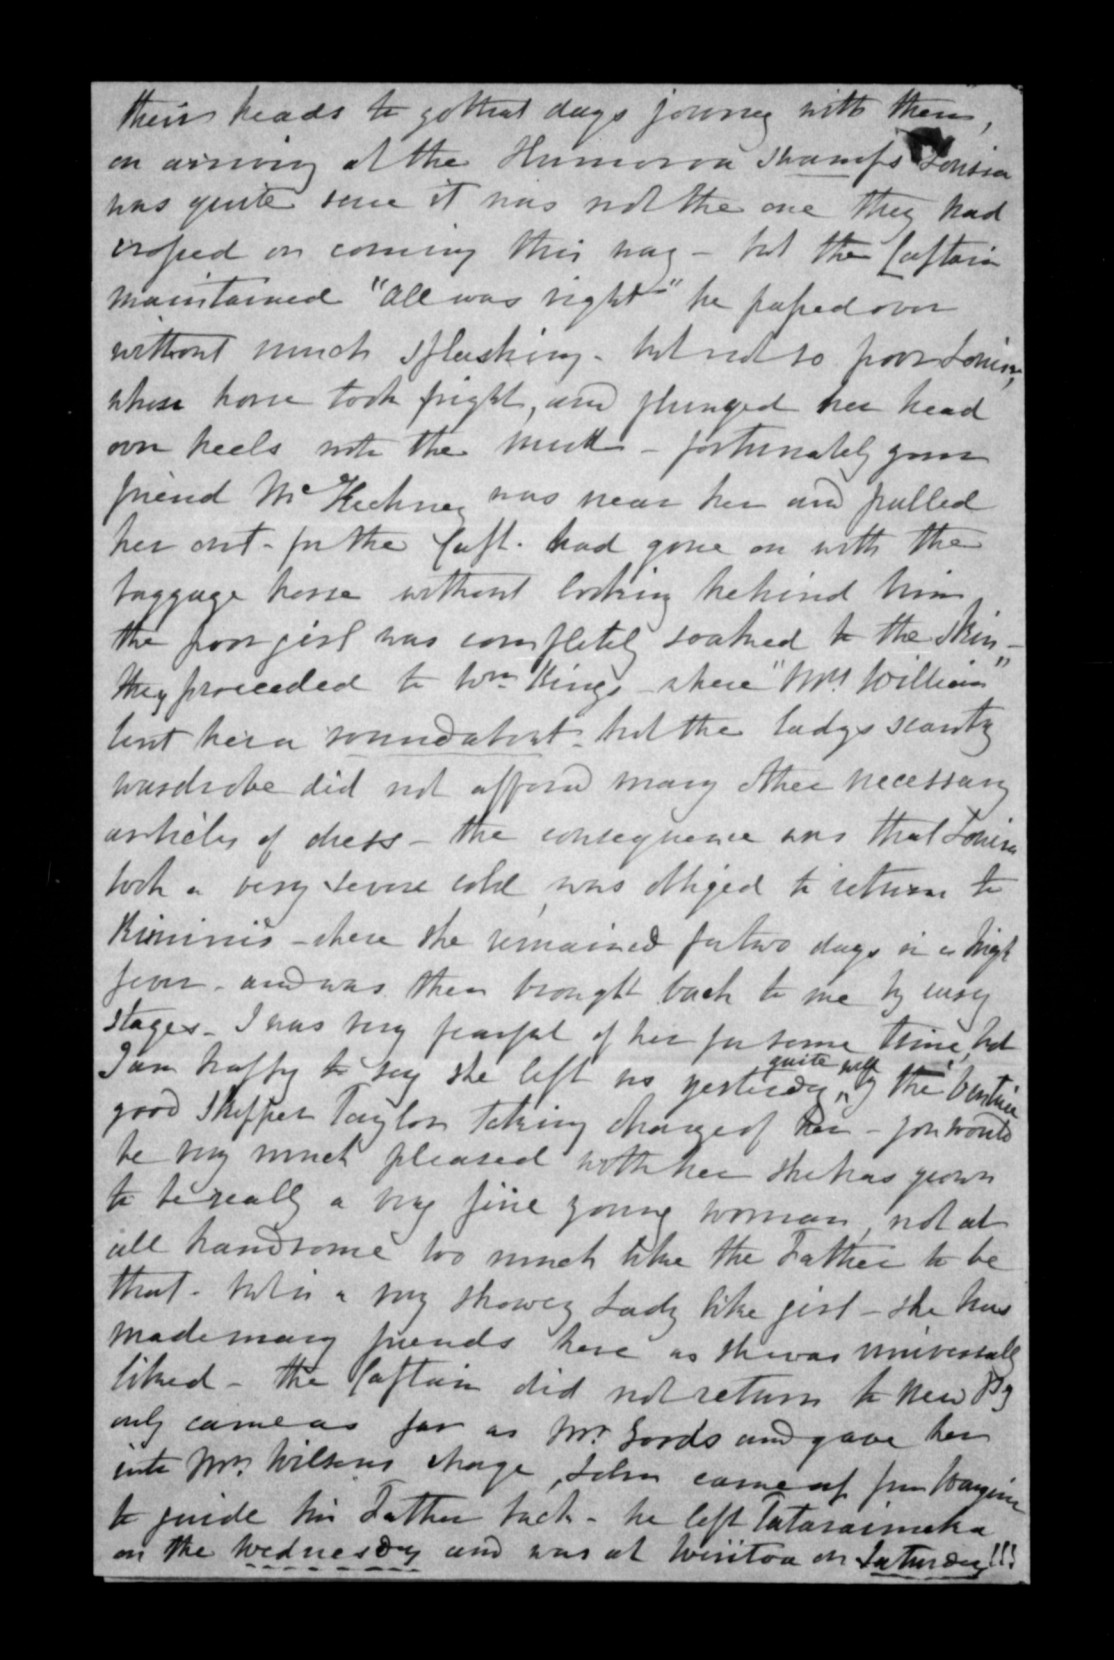 their heads to go that days journey with them,
on arriving at the Huimoroa swamps Louisa
was quite sure it was not the one they had
crossed on coming this way - but the Captain
maintained "All was right" he passed over
without much splashing - but not so poor Louisa,
whose horse took fright, and plunged her head
over heels into the muck - fortunately your
friend Mc Kechney was near her and pulled
her out - for the Capt. had gone on with the
baggage horse without looking behind him
the poor girl was completely soaked to the skin -
they proceeded to Wm Kings - where "Mrs William"
lent her a roundabout - but the ladys scanty
wardrobe did not afford many other necessary
articles of dress - the consequence was that Louisa
took a very severe cold, was obliged to return to
- where she remained for two days in a high
fever - and was then brought back to me by easy
stages - I was very fearful of her for some time, but
I am happy to say she left us yesterday quite well, by the
good Skipper Taylor taking charge of her - you would
be very much pleased with her she has grown
to be really a very fine young woman, not at
all handsome too much like the Father to be
that - but is a very showey Lady like girl - she has
made many friends here as she was universally
liked - the Captain did not return to New Ply
only came as far as Mr. and gave her
into Mrs. Wilsons charge, John came up from
to guide his Father back - he left Tataraimaka
on the Wednesday and was at on Saturday!!!